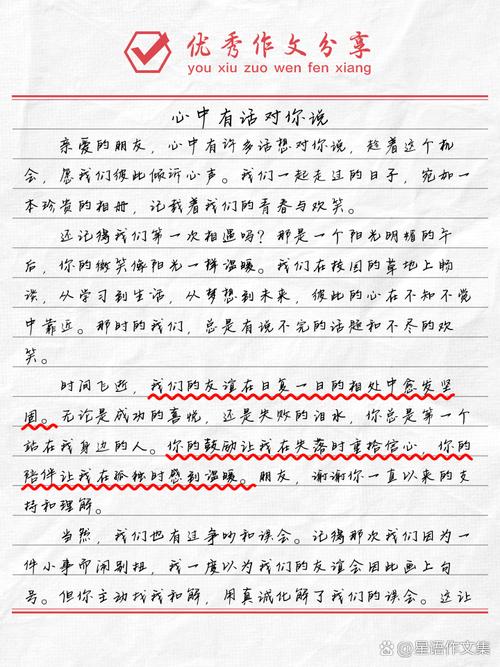 优秀作文分享
you xiu zuo wen fen xiang
心中有话对你说
亲爱的朋友，心中有许多话想对你说，趁着这个机
会，愿我们彼此倾诉心声。我们一起走过的日子，宛如一
本珍贵的相册，记载着我们的青春与欢笑。
还记得我们第一次相遇吗？那是一个阳光明媚的午
后，你的微笑像阳光一样温暖。我们在校园的草地上畅
谈，从学习到生活，从梦想到未来，彼此的心在不知不觉
中靠近。那时的我们，总是有说不完的话题和不尽的欢
笑。
时间飞逝，我们的友谊在日复一日的相处中愈发坚
固。无论是成功的喜悦，还是失败的泪水，你总是第一个
站在我身边的人。你的鼓励让我在失落时重拾信心，你的
陪伴让我在孤独时感到温暖。朋友，谢谢你一直以来的支
持和理解。
当然，我们也有过争吵和误会。记得那次我们因为一
件小事而闹别扭，我一度以为我们的友谊会因此画上句
号。但你主动找我和解，用真诚化解了我们的误会。这让
星语作文集